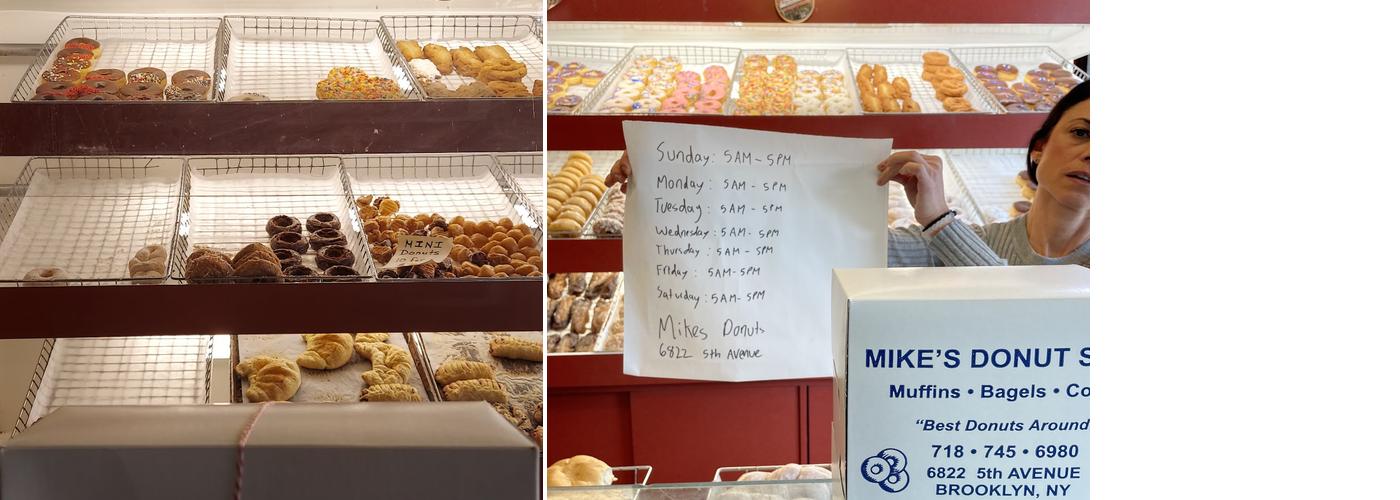 MINI
Donuts
Sunday: 5AM - 5PM
Monday: 5AM - 5PM
Tuesday: 5AM - 5PM
Wednesday: 5AM - 5PM
Thursday: 5AM - 5PM
Friday: 5AM - 5PM
Saturday: 5AM - 5PM
Mikes Donuts
6822 5th Avenue
MIKE'S DONUT S
Muffins • Bagels • Co
"Best Donuts Around
718 • 745 • 6980
6822 5th AVENUE
BROOKLYN, NY